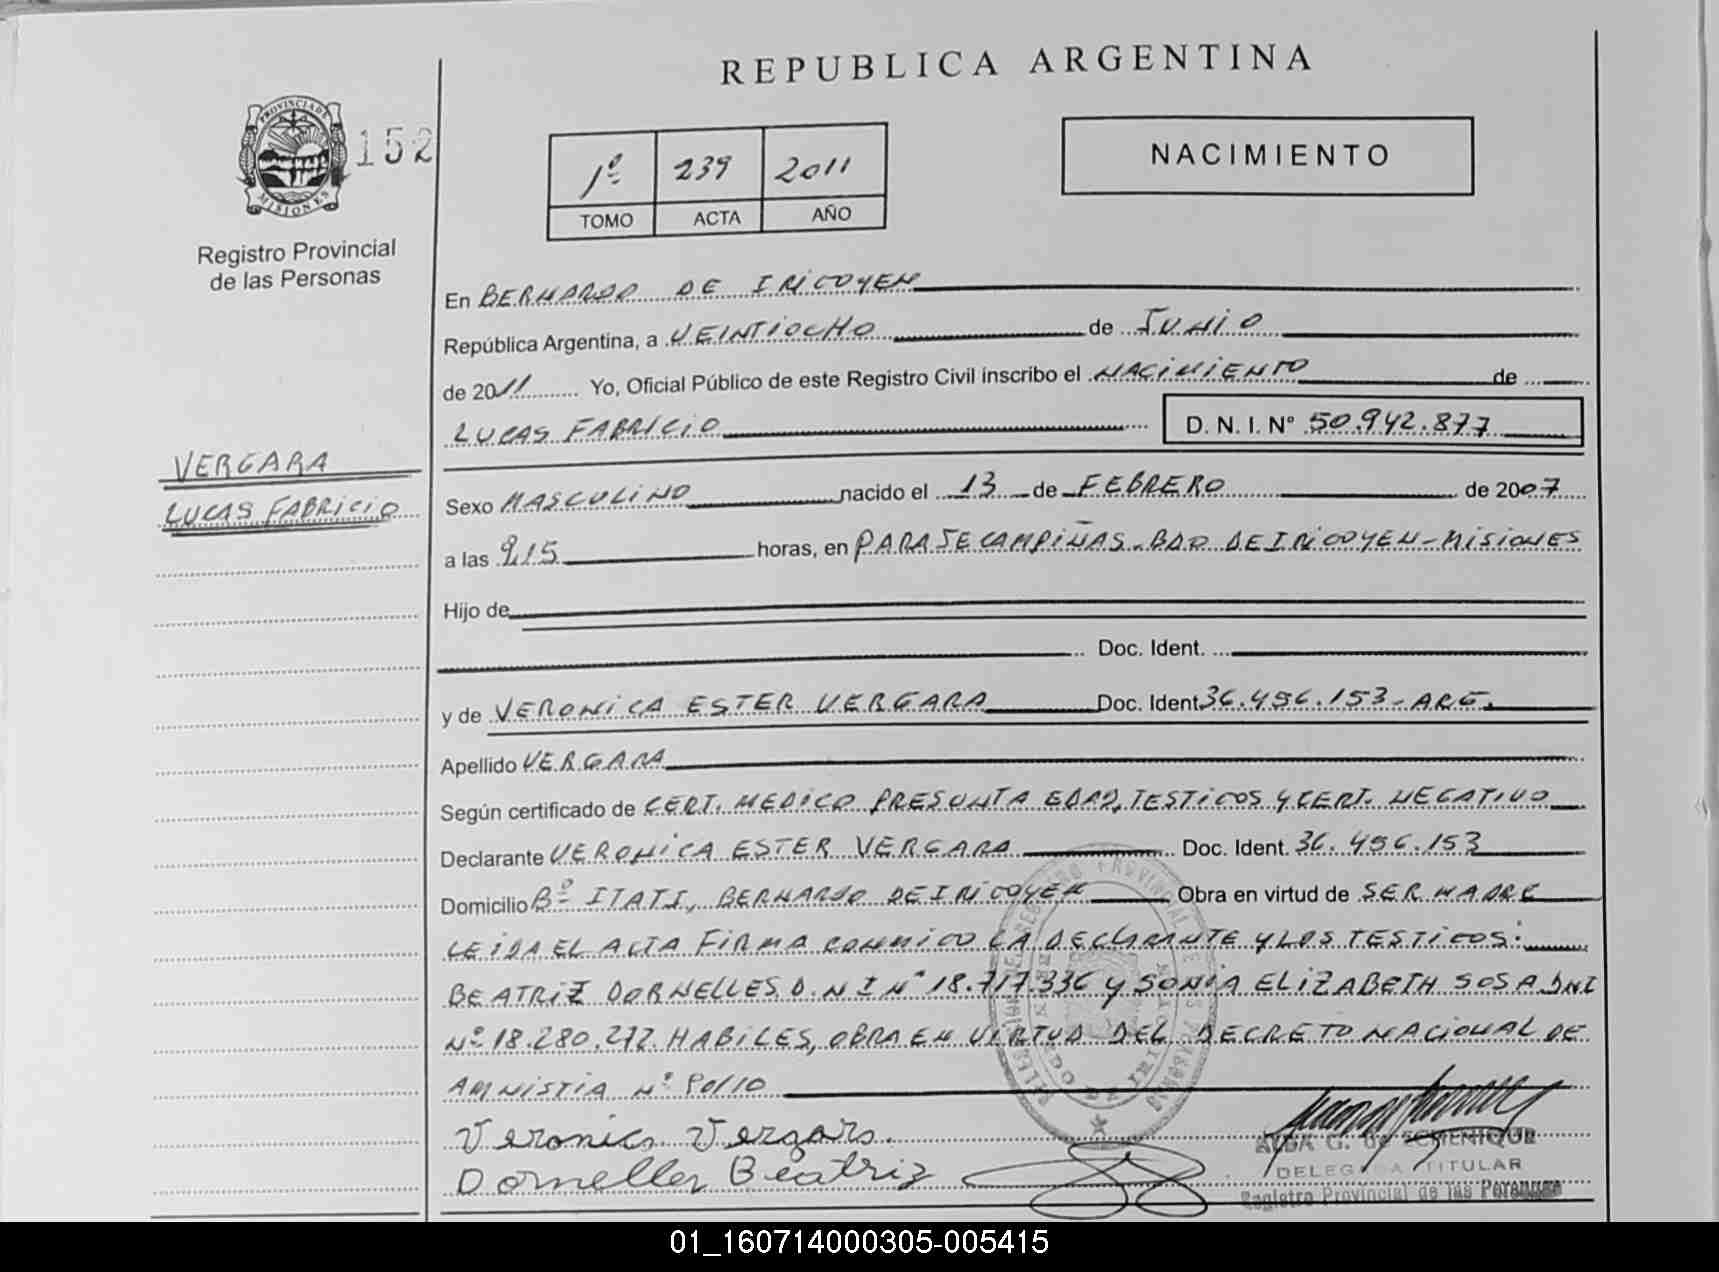 REPUBLICA ARGENTINA
PROVINCIA DE
MISIONES
152
Registro Provincial
de las Personas
1º 239 2011
TOMO ACTA AÑO
NACIMIENTO
En BERNARDO DE IRIGOYEN
República Argentina, a VEINTIOCHO de JUNIO
de 2011 Yo, Oficial Público de este Registro Civil inscribo el NACIMIENTO de
LUCAS FABRICIO D. N. I. Nº 50.942.877
VERGARA
LUCAS FABRICIO
Sexo MASCULINO nacido el 13 de FEBRERO de 2007
a las 9,15 horas, en PARAJE CAMPIÑAS-BDO DE IRIGOYEN-MISIONES
Hijo de
Doc. Ident.
y de VERONICA ESTER VERGARA Doc. Ident. 36.456.153-ARG.
Apellido VERGARA
Según certificado de CERT. MEDICO PRESUNTA EDAD, TESTIGOS Y CERT. NEGATIVO
Declarante VERONICA ESTER VERGARA Doc. Ident. 36.456.153
Domicilio Bº ITATI, BERNARDO DE IRIGOYEN Obra en virtud de SER MADRE
LEIDA EL ACTA FIRMA CONMIGO LA DECLARANTE Y LOS TESTIGOS:
BEATRIZ DORNELLES D.N I Nº 18.717.336 Y SONIA ELIZABETH SOSA DNI
Nº 18.280.272. HABILES, OBRA EN VIRTUD DEL DECRETO NACIONAL DE
AMNISTIA Nº 90/10
Veronica Vergara.
Dornelles Beatriz
ALBA G. de
DELEGADA TITULAR
Registro Provincial de las Personas
01_160714000305-005415